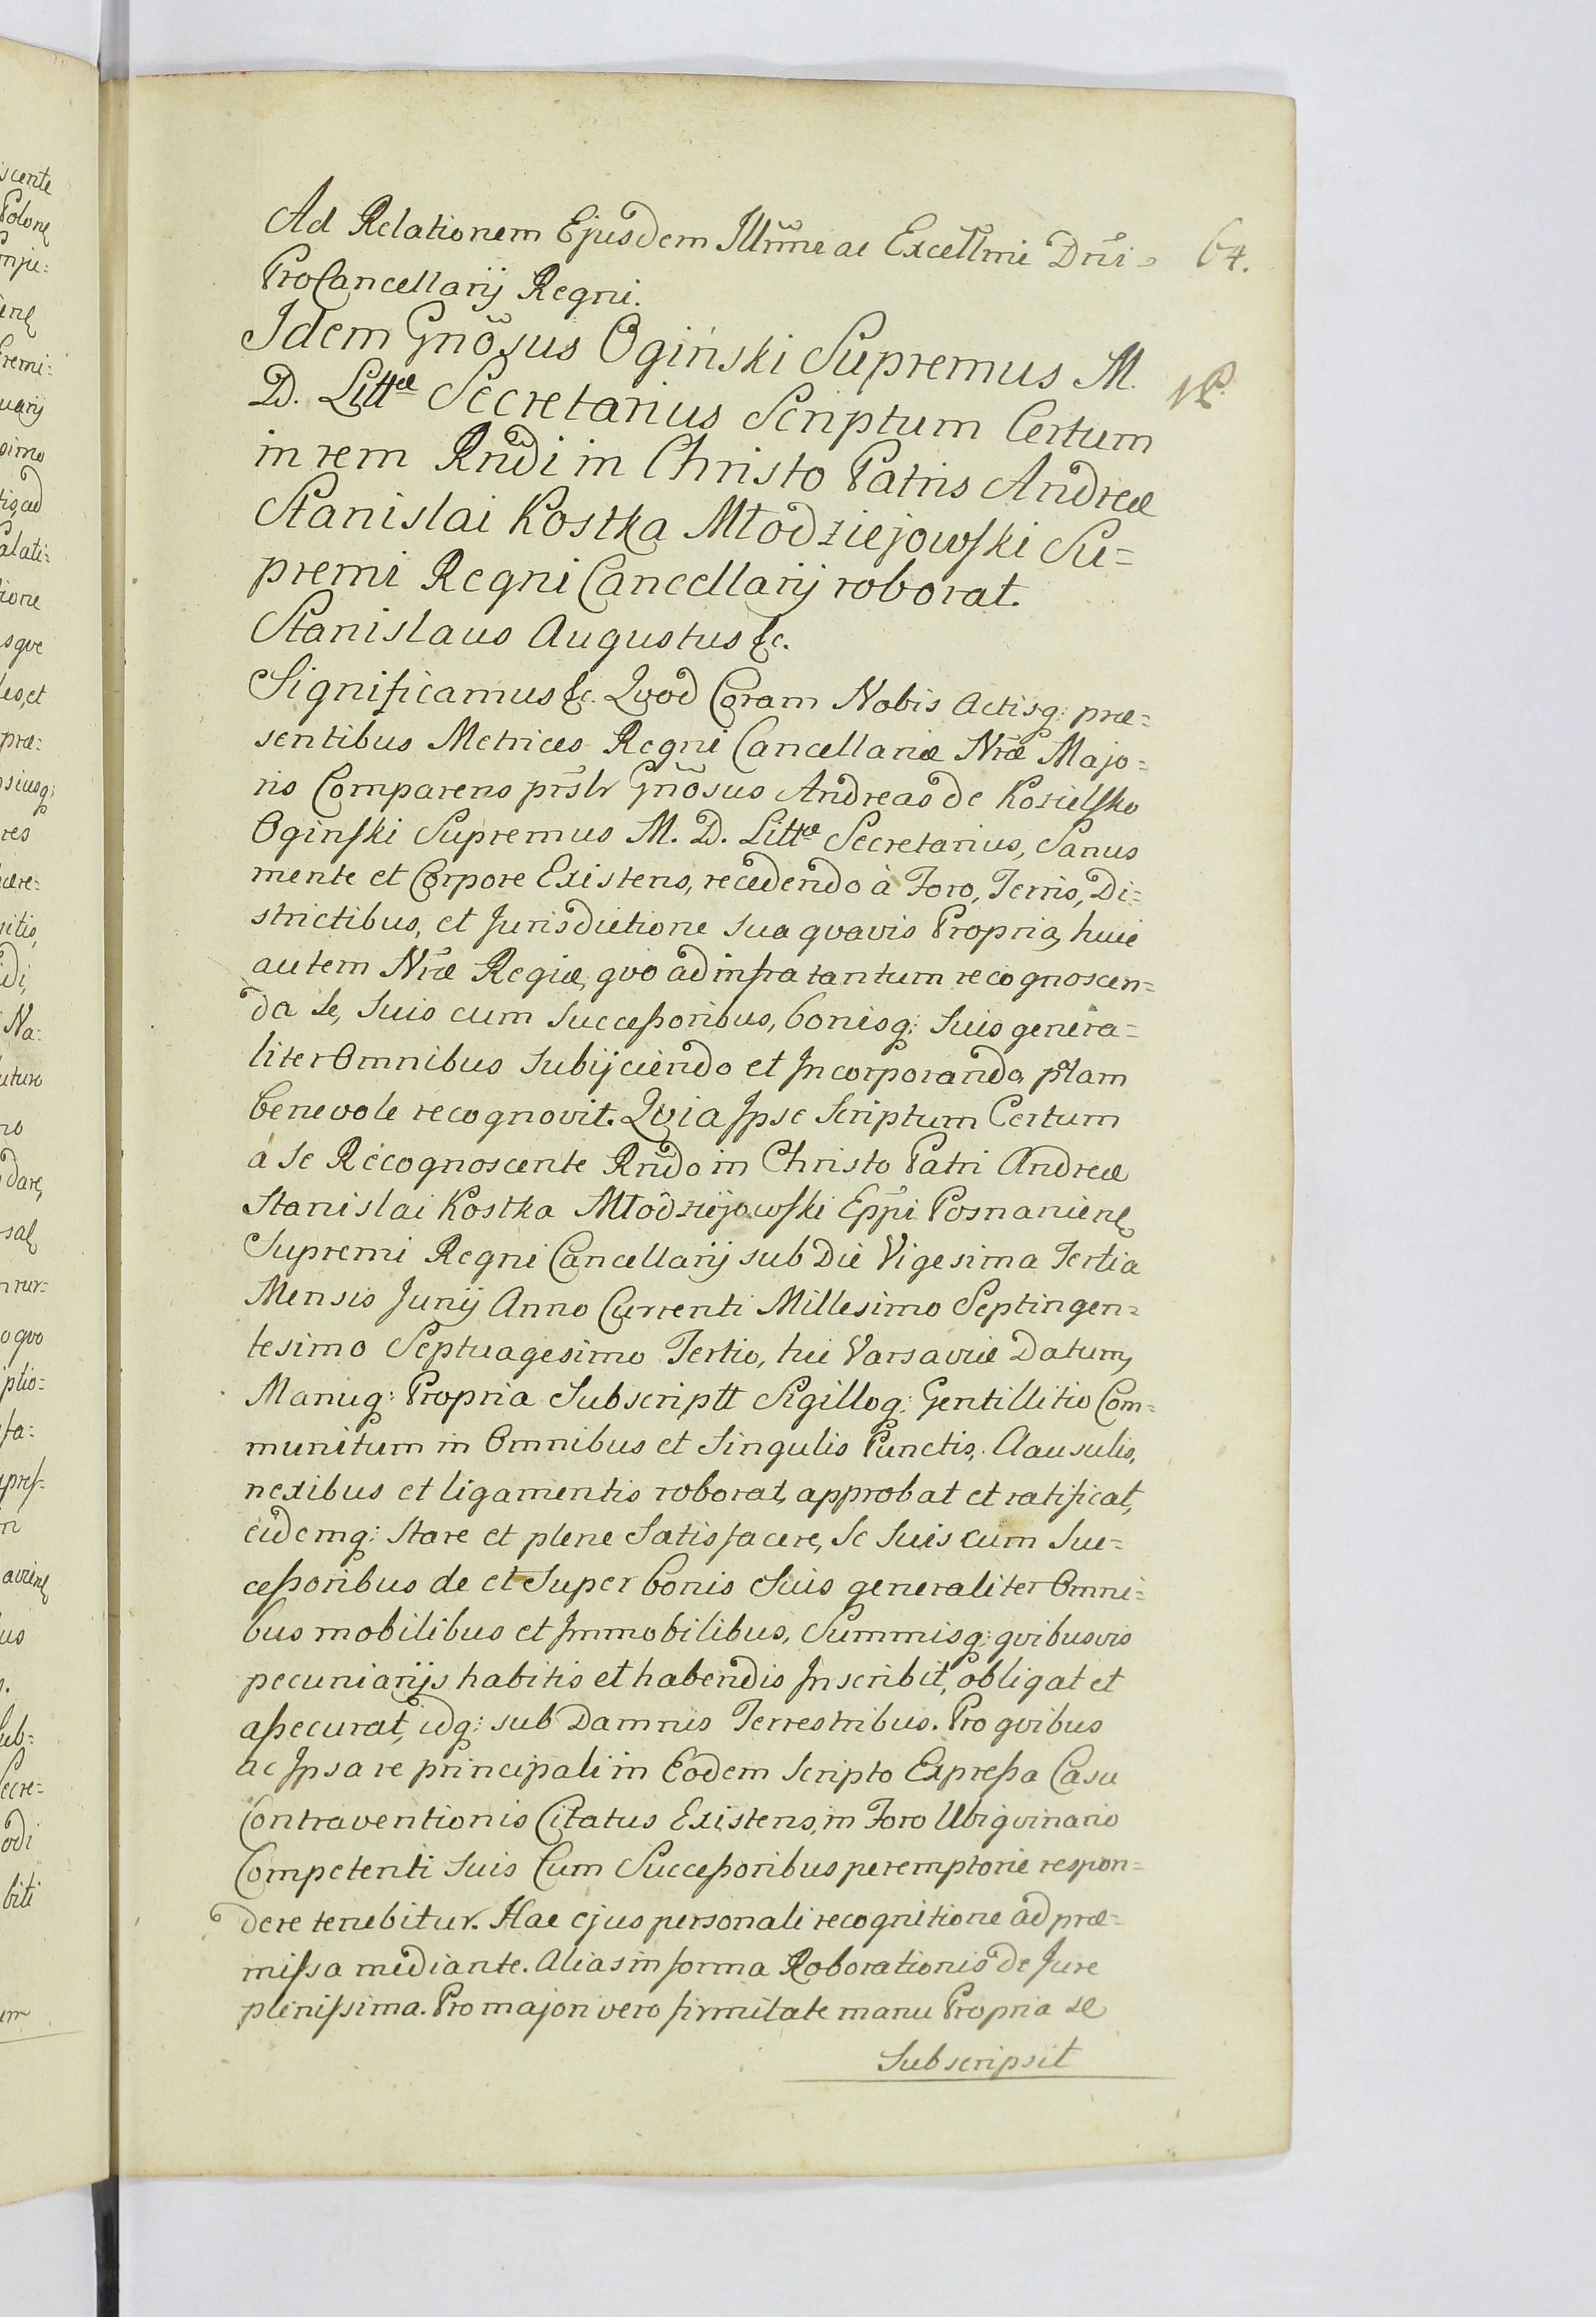 Ad Relationem Ejusdem Illmi͞ ac Excell͞mi Dn͞i
64.
ProCancellarij Regni.
Idem Gno͞sus Ogiński Supremus M.
D. Littæ Secretarius Scriptum Certum
in rem Rndi͞ in Christo Patris Andreæ
Stanislai Kostka Młodziejowski Su=
premi Regni Cancellarij roborat.
Stanislaus Augustus &c.
Significamus &c. Qvod Coram Nobis Actisq: præ=
sentibus Metrices Regni Cancellariæ Nr͞æ Majo=
ris Comparens prs͞lr Gno͞sus Andreas de Kozielsko
Oginski Supremus M. D. Littæ Secretarius, Sanus
mente et Corpore Existens, recedendo à Foro, Terris, Di=
strictibus, et Jurisdictione sua qvavis Propria, huic
autem Nr͞æ Regiæ, qvo ad infra tantum recognoscen=
da se, suis cum successoribus, bonisq: suis genera=
liter Omnibus subijciendo et Incorporando, plam
benevole recognovit. Qvia Ipse Scriptum Certum
a se Recognoscente Rndo͞ in Christo Patri Andreæ
Stanislai Kostka Młodziejowski Epp͞i Posnanien
Supremi Regni Cancellarij sub Die Vigesima Tertia
Mensis Junij Anno Currenti Millesimo Septingen=
tesimo Septuagesimo Tertio, hic Varsaviæ Datum,
Manuq: Propria Subscriptt Sigilloq: Gentillitio Com=
munitum in Omnibus et Singulis Punctis, Clausulis,
nexibus et ligamentis roborat, approbat et ratificat,
eidemq: stare et plene satisfacere, se suis cum suc=
cessoribus de et super bonis suis generaliter Omni=
bus mobilibus et Immobilibus, Summisq: qvibusvis
pecuniarijs habitis et habendis Inscribit, obligat et
assecurat, idq: sub Damnis Terrestribus. Pro qvibus
ac Ipsa re principali in Eodem Scripto Expressa Casu
Contraventionis Citatus Existens, in Foro Ubiqvinario
Competenti suis Cum Successoribus peremptorie respon=
dere tenebitur. Hac ejus personali recognitione ad præ=
missa mediante. Alias in forma Roborationis de Jure
plenissima. Pro majori vero firmitate manu Propria se
Subscripsit